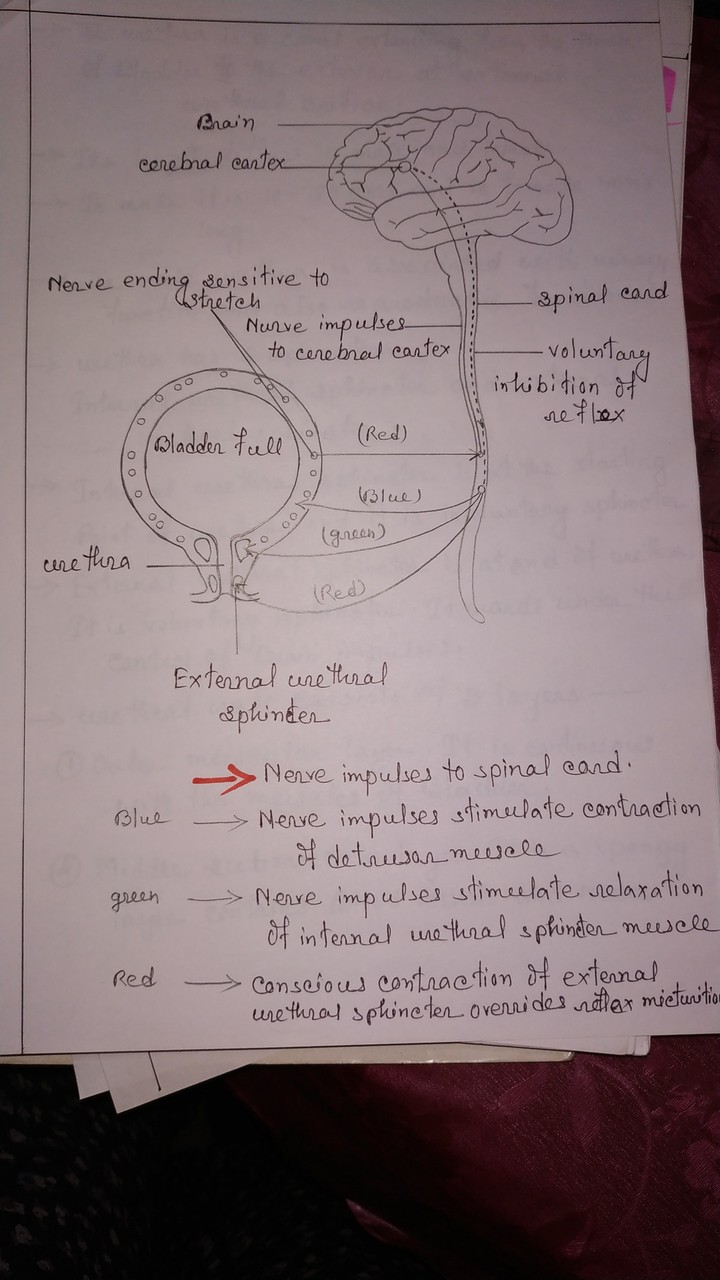 Brain
cerebral cartex
Nerve ending sensitive to
stretch
Nurve impulses
to cerebral cartex
spinal card
voluntary
inhibition of
reflex
Bladder full
(Red)
(Blue)
(green)
(Red)
urethra
External urethral
sphincter
Nerve impulses to spinal card.
Blue → Nerve impulses stimulate contraction
of detrusar muscle
green → Nerve impulses stimulate relaxation
of internal urethral sphincter muscle
Red → conscious contraction of external
urethral sphincter overrides reflex micturition